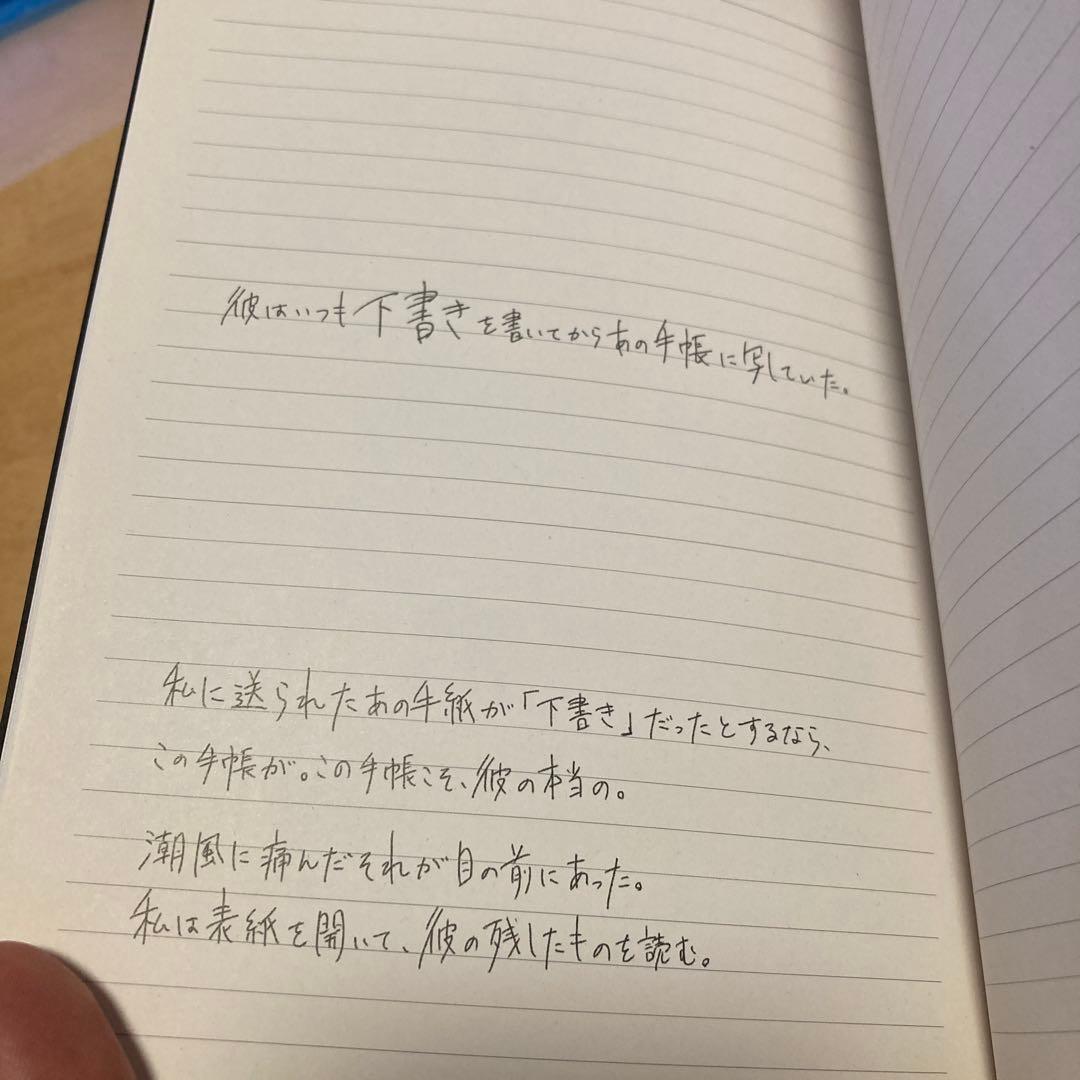 彼はいつも下書きを書いてからあの手帳に写していた。
私に送られたあの手紙が「下書き」だったとするなら、
この手帳が。この手帳こそ、彼の本当の。
潮風に痛んだそれが目の前にあった。
私は表紙を開いて、彼の残したものを読む。